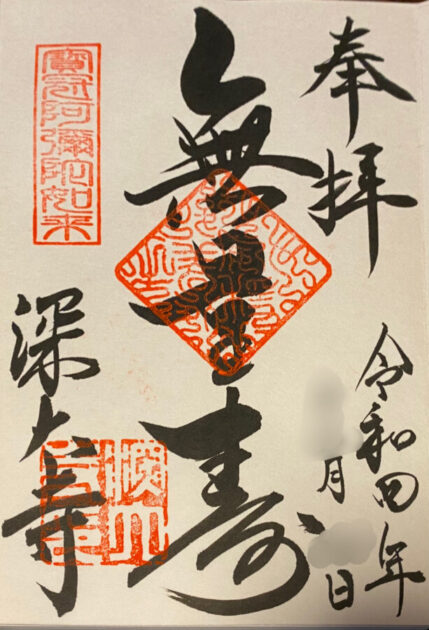 奉拝
令和四年
月 日
無量壽
寶冠阿彌陀如来
深大寺